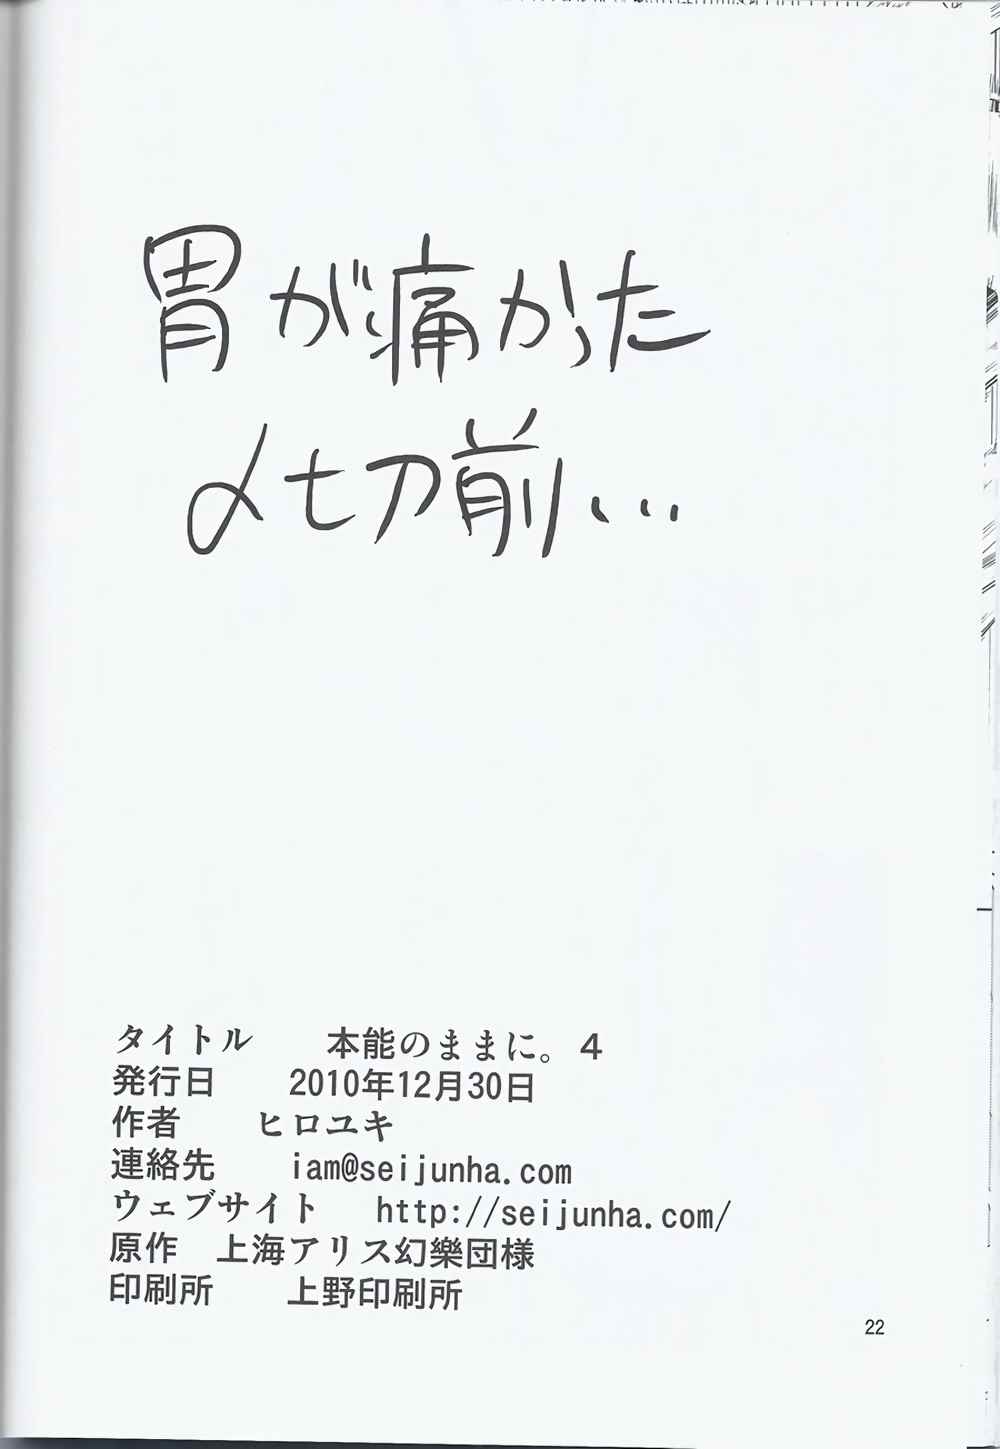 胃が痛かった
〆切前...
タイトル　本能のままに。４
発行日　2010年12月30日
作者　ヒロユキ
連絡先　iam@seijunha.com
ウェブサイト　http://seijunha.com/
原作　上海アリス幻樂団様
印刷所　上野印刷所
22